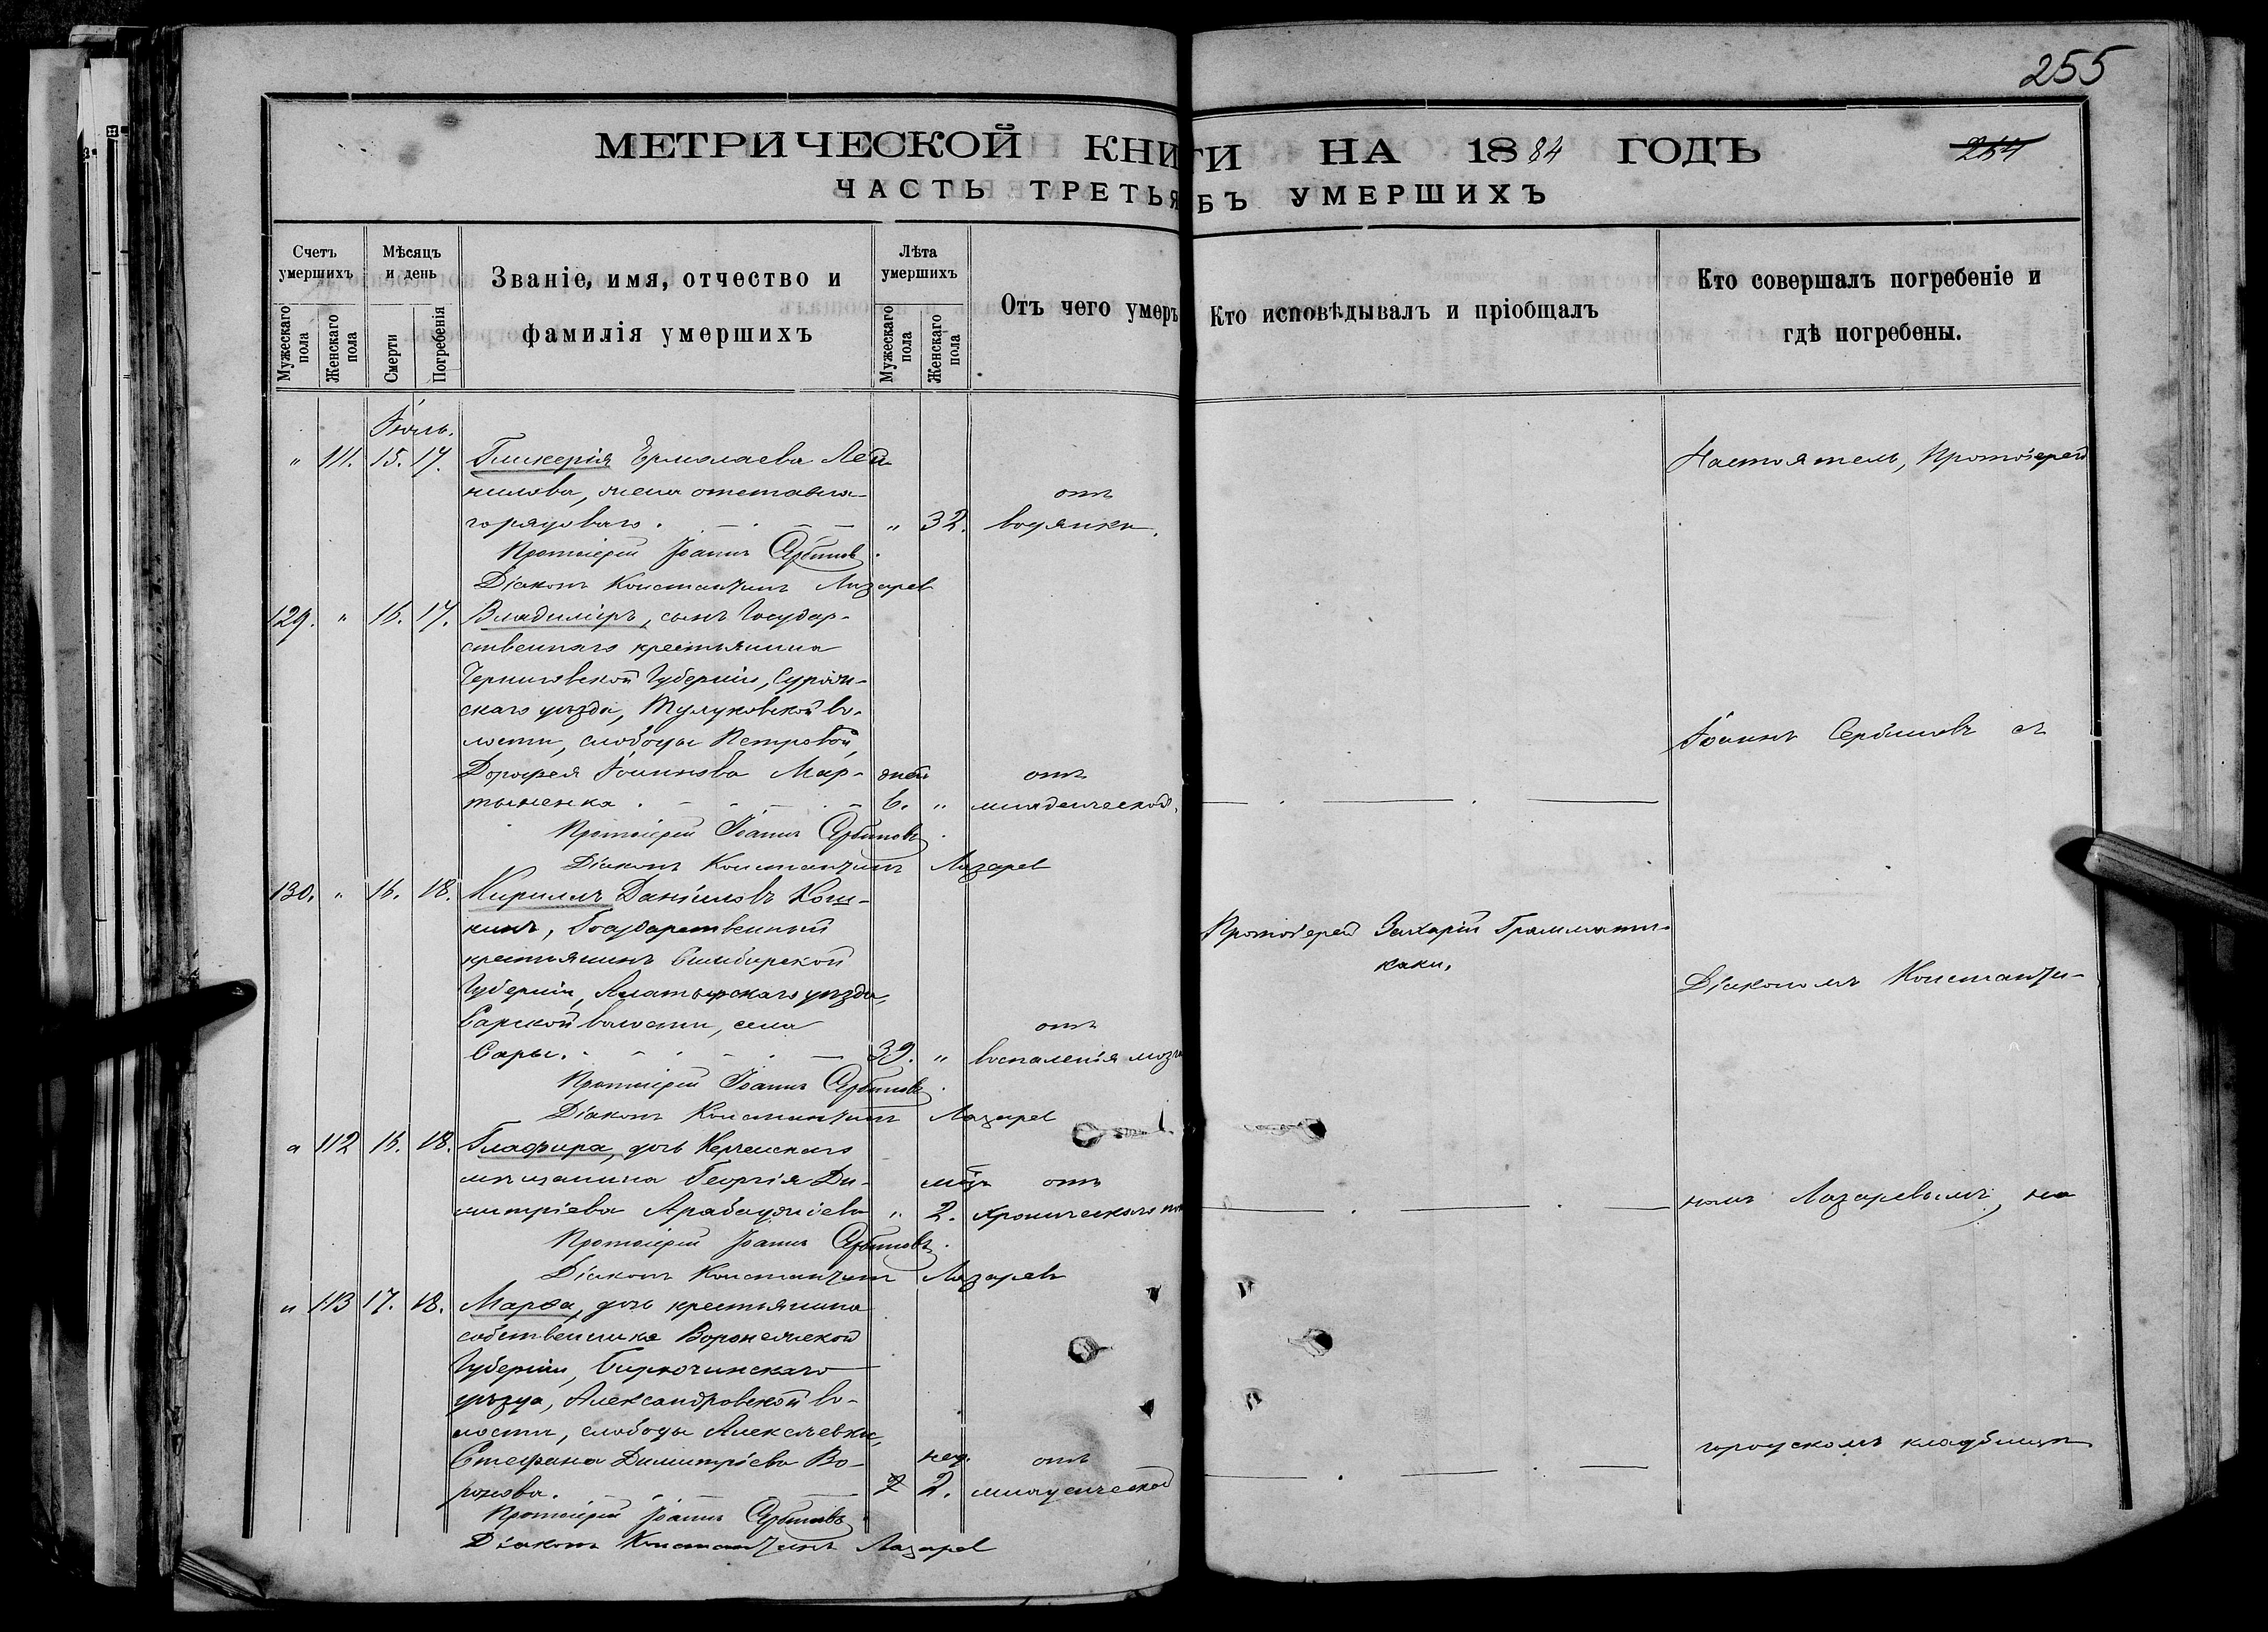 255
МЕТРИЧЕСКОЙ КНИГИ НА 1884 ГОДЪ
254
ЧАСТЬ ТРЕТЬЯ БЪ УМЕРШИХЪ
Счетъ умершихъ
Мужескаго пола
Женскаго пола
Мѣсяцъ и день
Смерти
Погребенія
Званіе, имя, отчество и
фамилія умершихъ
Лѣта умершихъ
Мужескаго пола
Женскаго пола
Отъ чего умеръ
Кто исповѣдывалъ и пріобщалъ
Кто совершалъ погребеніе и
гдѣ погребены.
Іюль.
" 111. 15. 17. Гликерія Ермолаева
жена отставна-
го рядоваго. " 32. отъ водянки.
Протоіерей Іоаннъ Сербиновъ.
Діаконъ Константинъ Лазарев
129. " 16. 17. Владиміръ, сынъ Государ-
ственнаго крестьянина
Черниговской Губерніи, Суражи-
скаго уѣзда, во-
лости, слободы Петровой,
Дорофея Іоаннова Мар- дней отъ
тыненка 6. " младенческой,
Протоіерей Іоаннъ Сербиновъ.
Діаконъ Константинъ Лазарев
130. " 16. 18. Кириллъ Даніиловъ Кош-
кинъ, Государственный
крестьянинъ Симбирской
Губерніи, Алатырскаго уѣзда,
Сарской волости, села отъ
Сары. 39. " воспаленія мозга
Протоіерей Іоаннъ Сербиновъ.
Діаконъ Константинъ Лазарев
" 112 16. 18. Глафира, дочь Керченскаго
мѣщанина Георгія Ди- мѣс. отъ
митріева Арабаджіева " 2. хроническаго
Протоіерей Іоаннъ Сербиновъ.
Діаконъ Константинъ Лазаревъ
" 113 17. 18. Марфа, дочь крестьянина
собственника Воронежской
Губерніи, Бирючинскаго
уѣзда, Александровской во-
лости, слободы Алексѣевки,
Стефана Димитріева Во- нед. отъ
ронова. 2. младенческой
Протоіерей Іоаннъ Сербиновъ.
Діаконъ Константинъ Лазарев
Протоіерей Захарій Грамматико-
каки.
Настоятель, Протоіерей
Іоаннъ Сербиновъ съ
Діакономъ Константи-
номъ Лазаревымъ, на
городскомъ кладбищѣ